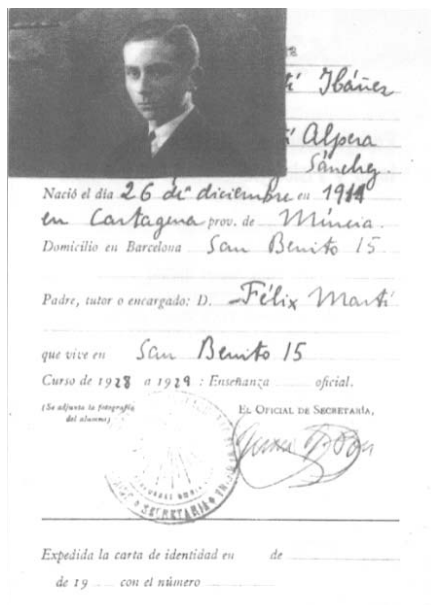 í Ibáñez
í Alpera
Sánchez.
Nació el día 26 de diciembre en 1911
en Cartagena prov. de Múrcia.
Domicilio en Barcelona San Benito 15
Padre, tutor o encargado: D. Félix Martí
que vive en San Benito 15
Curso de 1928 a 1929 : Enseñanza oficial.
(Se adjunta la fotografía
del alumno)
EL OFICIAL DE SECRETARÍA,
SECRETARÍA
Expedida la carta de identidad en de
de 19 con el número